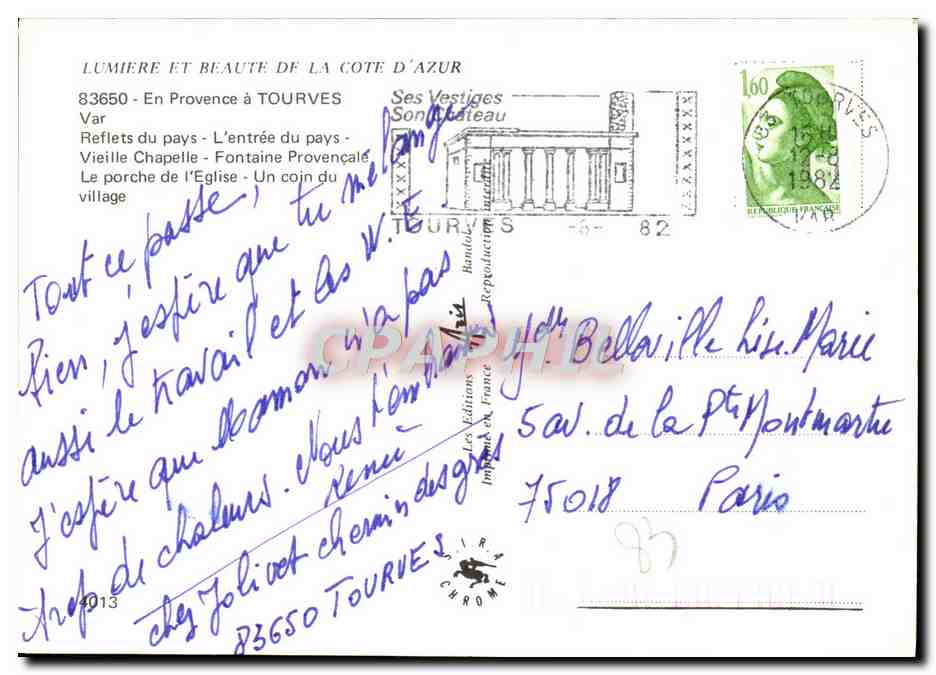 LUMIERE ET BEAUTE DE LA COTE D'AZUR
83650 - En Provence à TOURVES
Var
Reflets du pays - L'entrée du pays -
Vieille Chapelle - Fontaine Provençale
Le porche de l'Eglise - Un coin du
village
Ses Vestiges
Son Château
TOURVES -8- 82
1,60
REPUBLIQUE FRANÇAISE
TOURVES
1982
VAR
Tout ce passe,
bien, j'espère que tu mélange
aussi le travail et les W.E.
J'espère que Maman n'a pas
trop de chaleurs. Nous t'embrassons
René
chez Jolivet chemin des grès
83650 TOURVES
4013
Les Editions Aris Bandol
Imprimé en France Reproduction interdite
SIRA
CHROME
CPAPHIL
Melle Belloville Lise. Marie
5 av. de la Pte Montmartre
75018 Paris
83